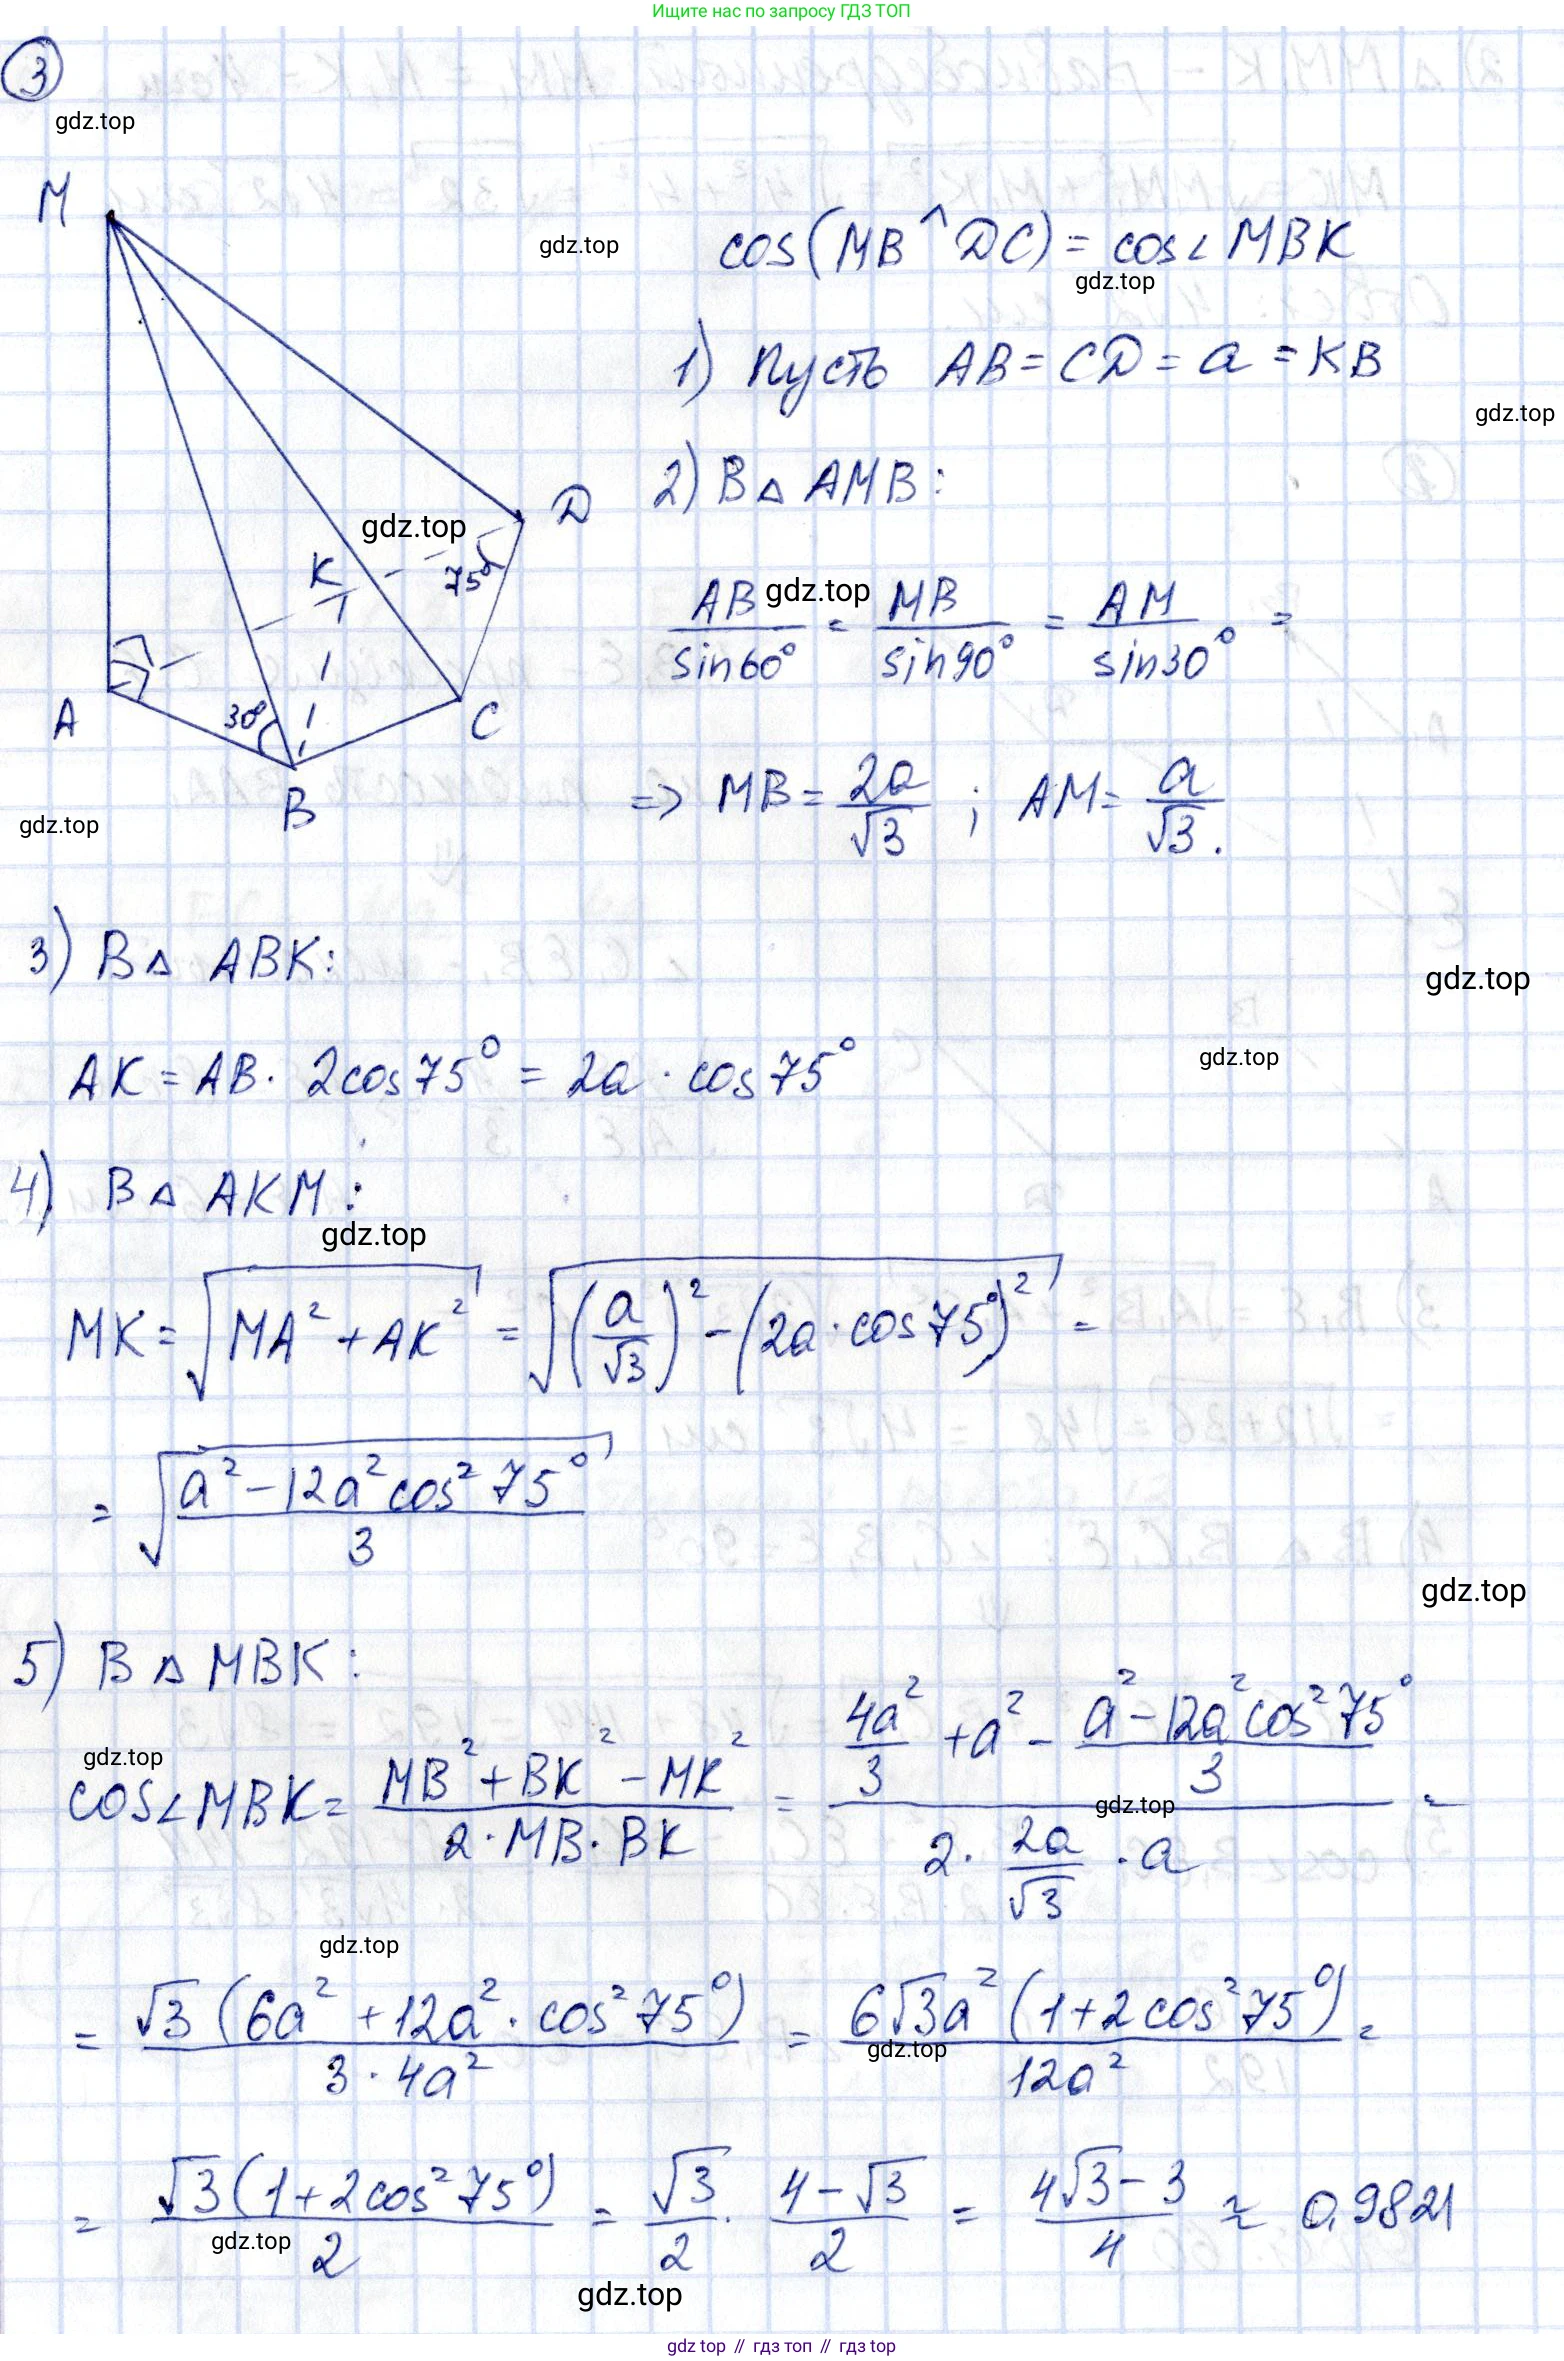 Ищите нас по запросу ГДЗ ТОП
3
gdz.top
M
gdz.top
cos(MB^DC) = cos∠MBK
gdz.top
1) Пусть AB = CD = a = KB
gdz.top
2) В △ AMB:
D
gdz.top
K
75°
AB/sin60° = MB/sin90° = AM/sin30° =
gdz.top
A
30°
C
B
=> MB = 2a/√3 ; AM = a/√3.
gdz.top
3) В △ ABK:
gdz.top
AK = AB · 2cos75° = 2a · cos75°
gdz.top
4) В △ AKM:
gdz.top
MK = √(MA² + AK²) = √((a/√3)² - (2a · cos75°)²) =
= √((a² - 12a² cos² 75°)/3)
gdz.top
5) В △ MBK:
gdz.top
cos∠MBK = (MB² + BK² - MK²)/(2 · MB · BK) = (4a²/3 + a² - (a² - 12a² cos² 75°)/3)/(2 · 2a/√3 · a) =
gdz.top
gdz.top
= √3 (6a² + 12a² · cos² 75°)/(3 · 4a²) = 6√3a² (1 + 2cos² 75°)/(12a²) =
gdz.top
= √3 (1 + 2cos² 75°)/2 = √3/2 · (4 - √3)/2 = (4√3 - 3)/4 ≈ 0,9821
gdz.top
gdz.top
gdz top // гдз топ // гдз top